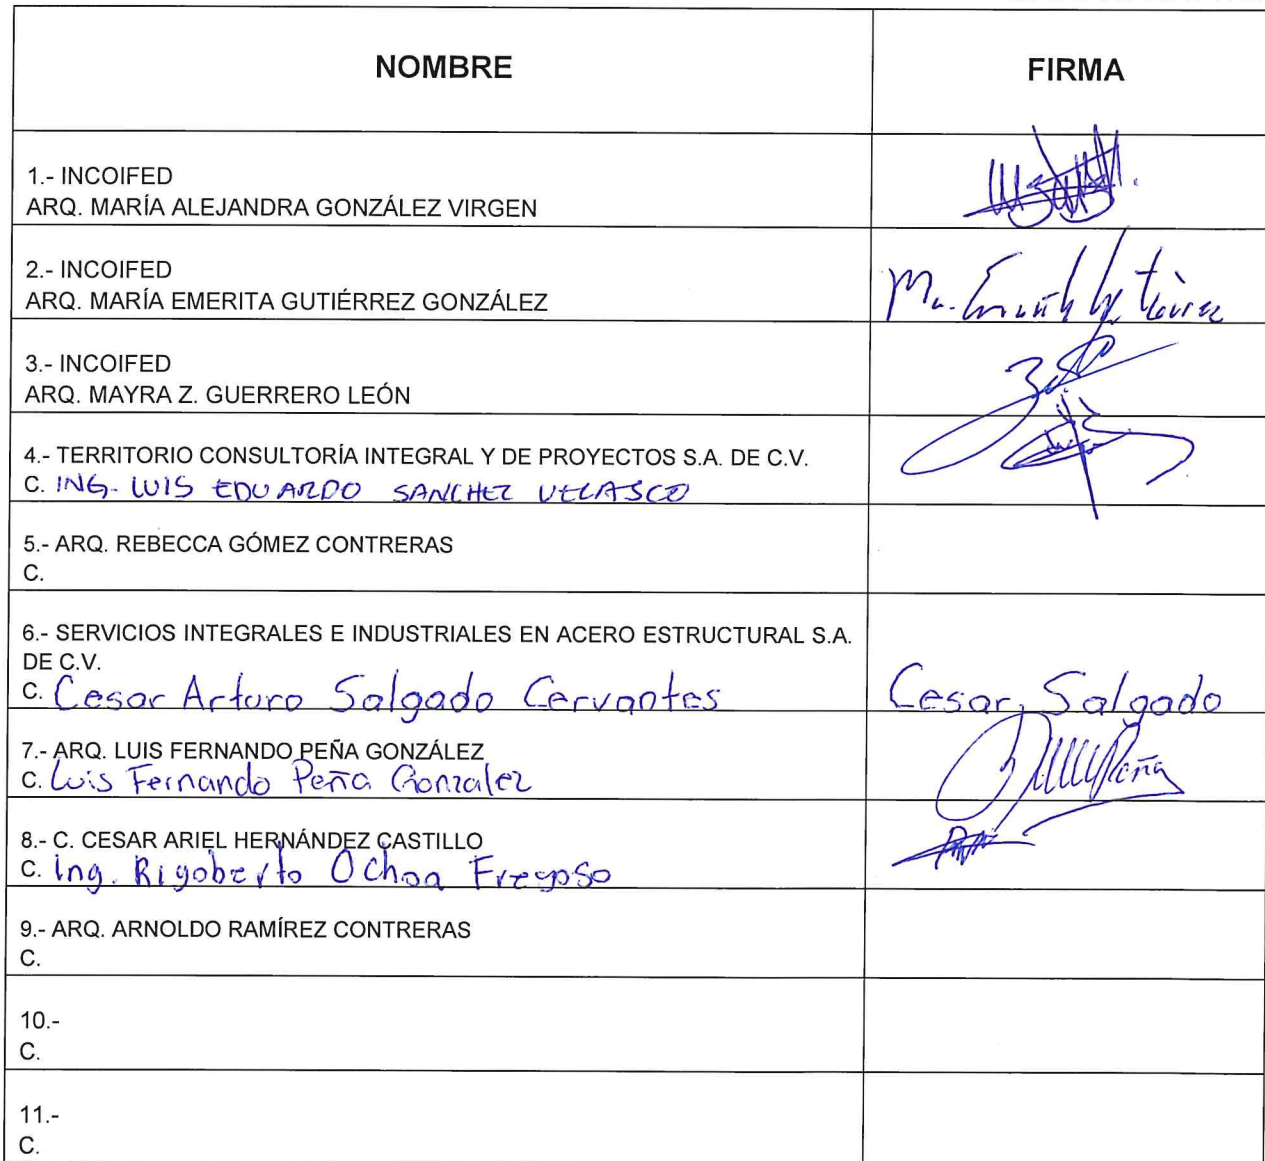 NOMBRE
FIRMA
1.- INCOIFED
ARQ. MARÍA ALEJANDRA GONZÁLEZ VIRGEN
2.- INCOIFED
ARQ. MARÍA EMERITA GUTIÉRREZ GONZÁLEZ
3.- INCOIFED
ARQ. MAYRA Z. GUERRERO LEÓN
4.- TERRITORIO CONSULTORÍA INTEGRAL Y DE PROYECTOS S.A. DE C.V.
C. ING. LUIS EDUARDO SANCHEZ VELASCO
5.- ARQ. REBECCA GÓMEZ CONTRERAS
C.
6.- SERVICIOS INTEGRALES E INDUSTRIALES EN ACERO ESTRUCTURAL S.A.
DE C.V.
C. Cesar Arturo Salgado Cervantes
Cesar Salgado
7.- ARQ. LUIS FERNANDO PEÑA GONZÁLEZ
C. Luis Fernando Peña Gonzalez
Peña
8.- C. CESAR ARIEL HERNÁNDEZ CASTILLO
C. Ing. Rigoberto Ochoa Fregoso
9.- ARQ. ARNOLDO RAMÍREZ CONTRERAS
C.
10.-
C.
11.-
C.